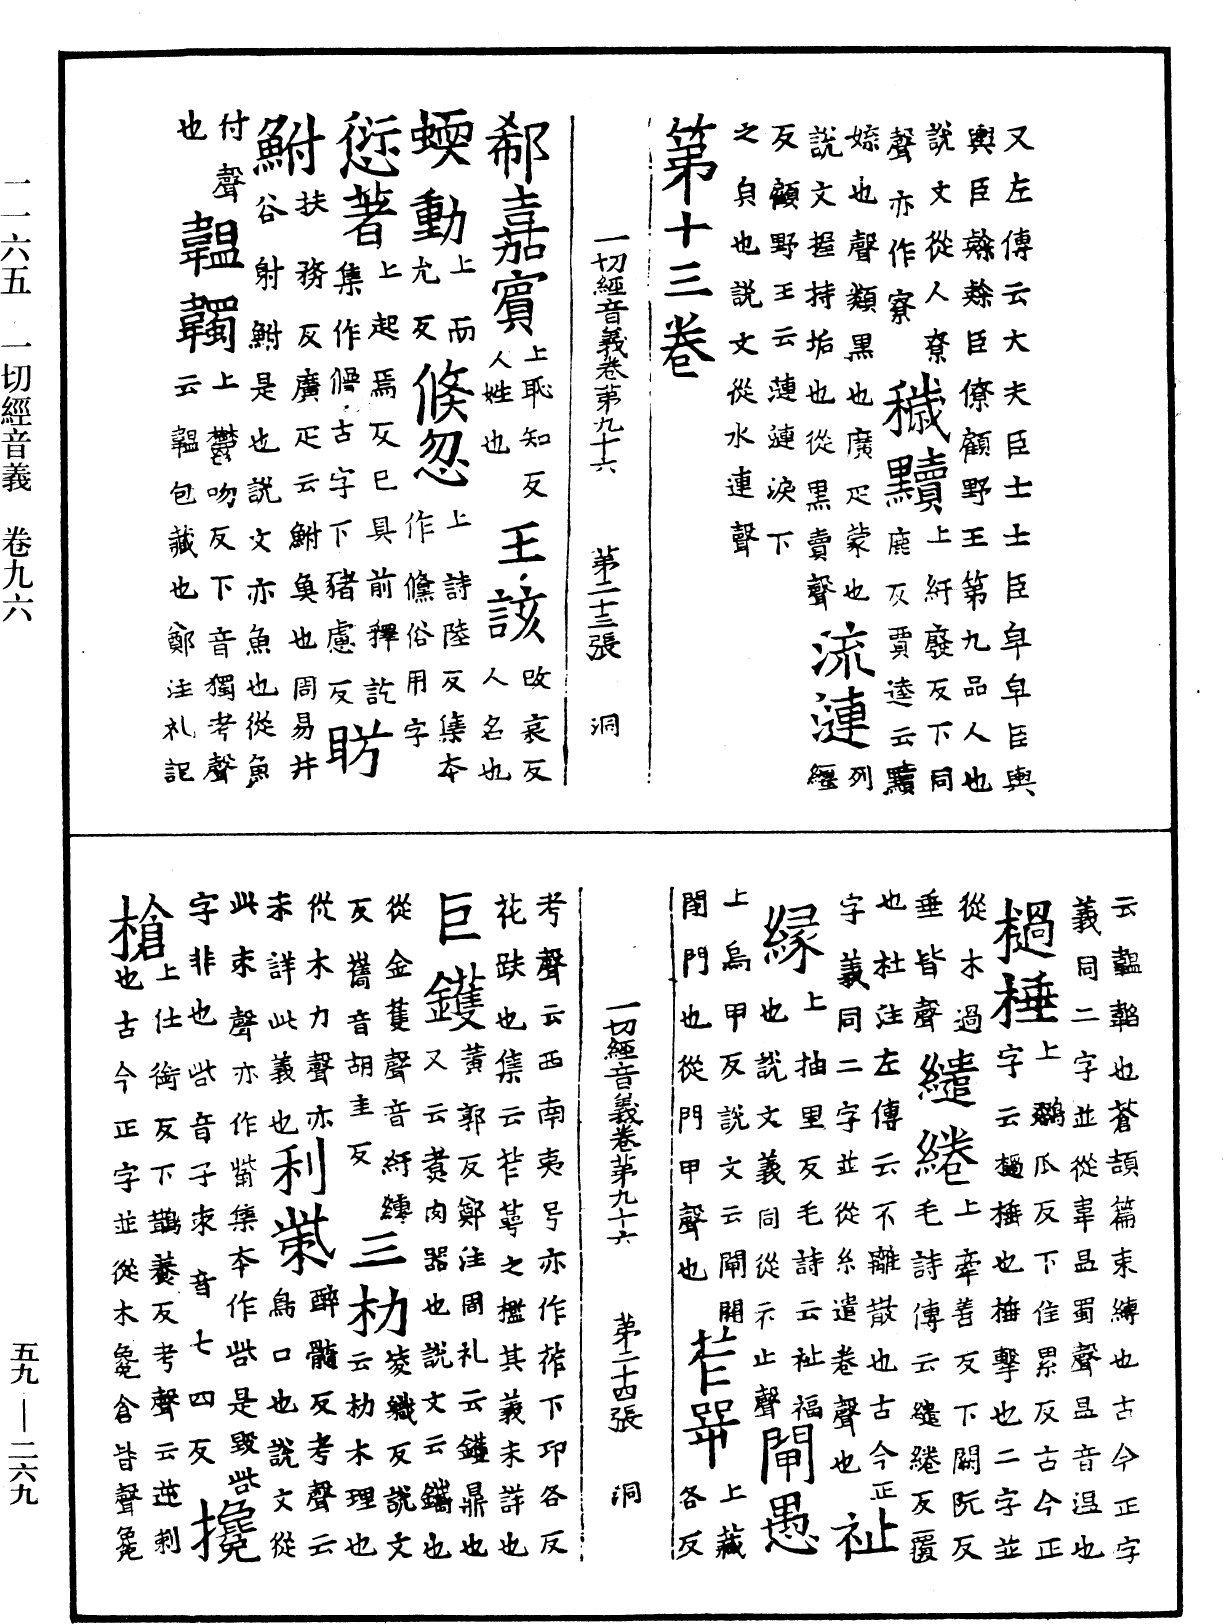 二一六五　一切經音義　卷九六
又左傳云大夫臣士士臣皁皁臣輿
輿臣隸隸臣僚顧野王第九品人也
說文從人尞
聲亦作寮
穢黷
上紆廢反下同
鹿反賈逵云黷
媟也聲類黑也廣疋蒙也
說文握持垢也從黑賣聲
流漣
經列
反顧野王云漣漣淚下
之皃也說文從水連聲
第十三卷
一切經音義卷第九十六　第二十三張　洞
郗嘉賓
上恥知反
人姓也
王該
改哀反
人名也
蝡動
上而
允反
倏忽
上詩陸反集本
作儵俗用字
愆著
上起焉反已具前釋訖
集作𠍴古字下豬慮反
昉
鮒
扶務反廣疋云鮒魚也周易井
谷射鮒是也說文亦魚也從魚
付聲
也
韞韣
上鬱吻反下音獨考聲
云韞包藏也鄭注礼記
云韞韜也蒼頡篇束縛也古今正字
義同二字並從韋昷蜀聲昷音溫也
檛棰
上鷨瓜反下隹累反古今正
字云檛棰也棰擊也二字並
從木過
垂皆聲
繾綣
上牽善反下闕阮反
毛詩傳云繾綣反覆
也杜注左傳云不離散也古今正
字義同二字並從糸遣卷聲也
祉
緣
上抽里反毛詩云祉福
也說文義同從示止聲
閘愚
上烏甲反說文云閘開
閉門也從門甲聲也
柞㖾
上藏
各反
一切經音義卷第九十六　第二十四張　洞
考聲云西南夷号亦作筰下卭各反
花趺也集云柞萼之檻其義未詳也
巨鑊
黃郭反鄭注周礼云鑊鼎也
又云煑肉器也說文云鑴也
從金蒦聲音紆縛
反鑴音胡圭反
三朸
凌織反說文
云朸木理也
從木力聲亦
未詳此義也
利觜
醉髓反考聲云
鳥口也說文從
此朿聲亦作觜集本作㭰是毀㭰
字非也㭰音子朿音七四反
攙
槍
上仕銜反下鵲養反考聲云逆剌
也古今正字並從木毚倉皆聲毚
五九——二六九